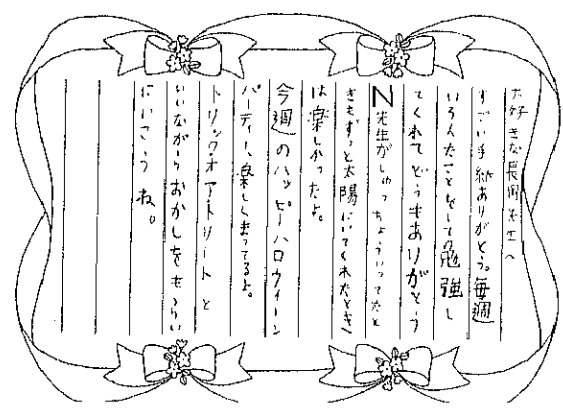 大好きな長岡先生へ
すごい手紙ありがとう。毎週
いろんなことをして勉強し
てくれてどうもありがとう
N先生がしゅっちょういってたと
きもずっと太陽にいてくれたとき
は楽しかったよ。
今週のハッピーハロウィーン
パーティー、楽しくまってるよ。
トリック・オア・トリートと
いいながらおかしをもらい
にいこうね。